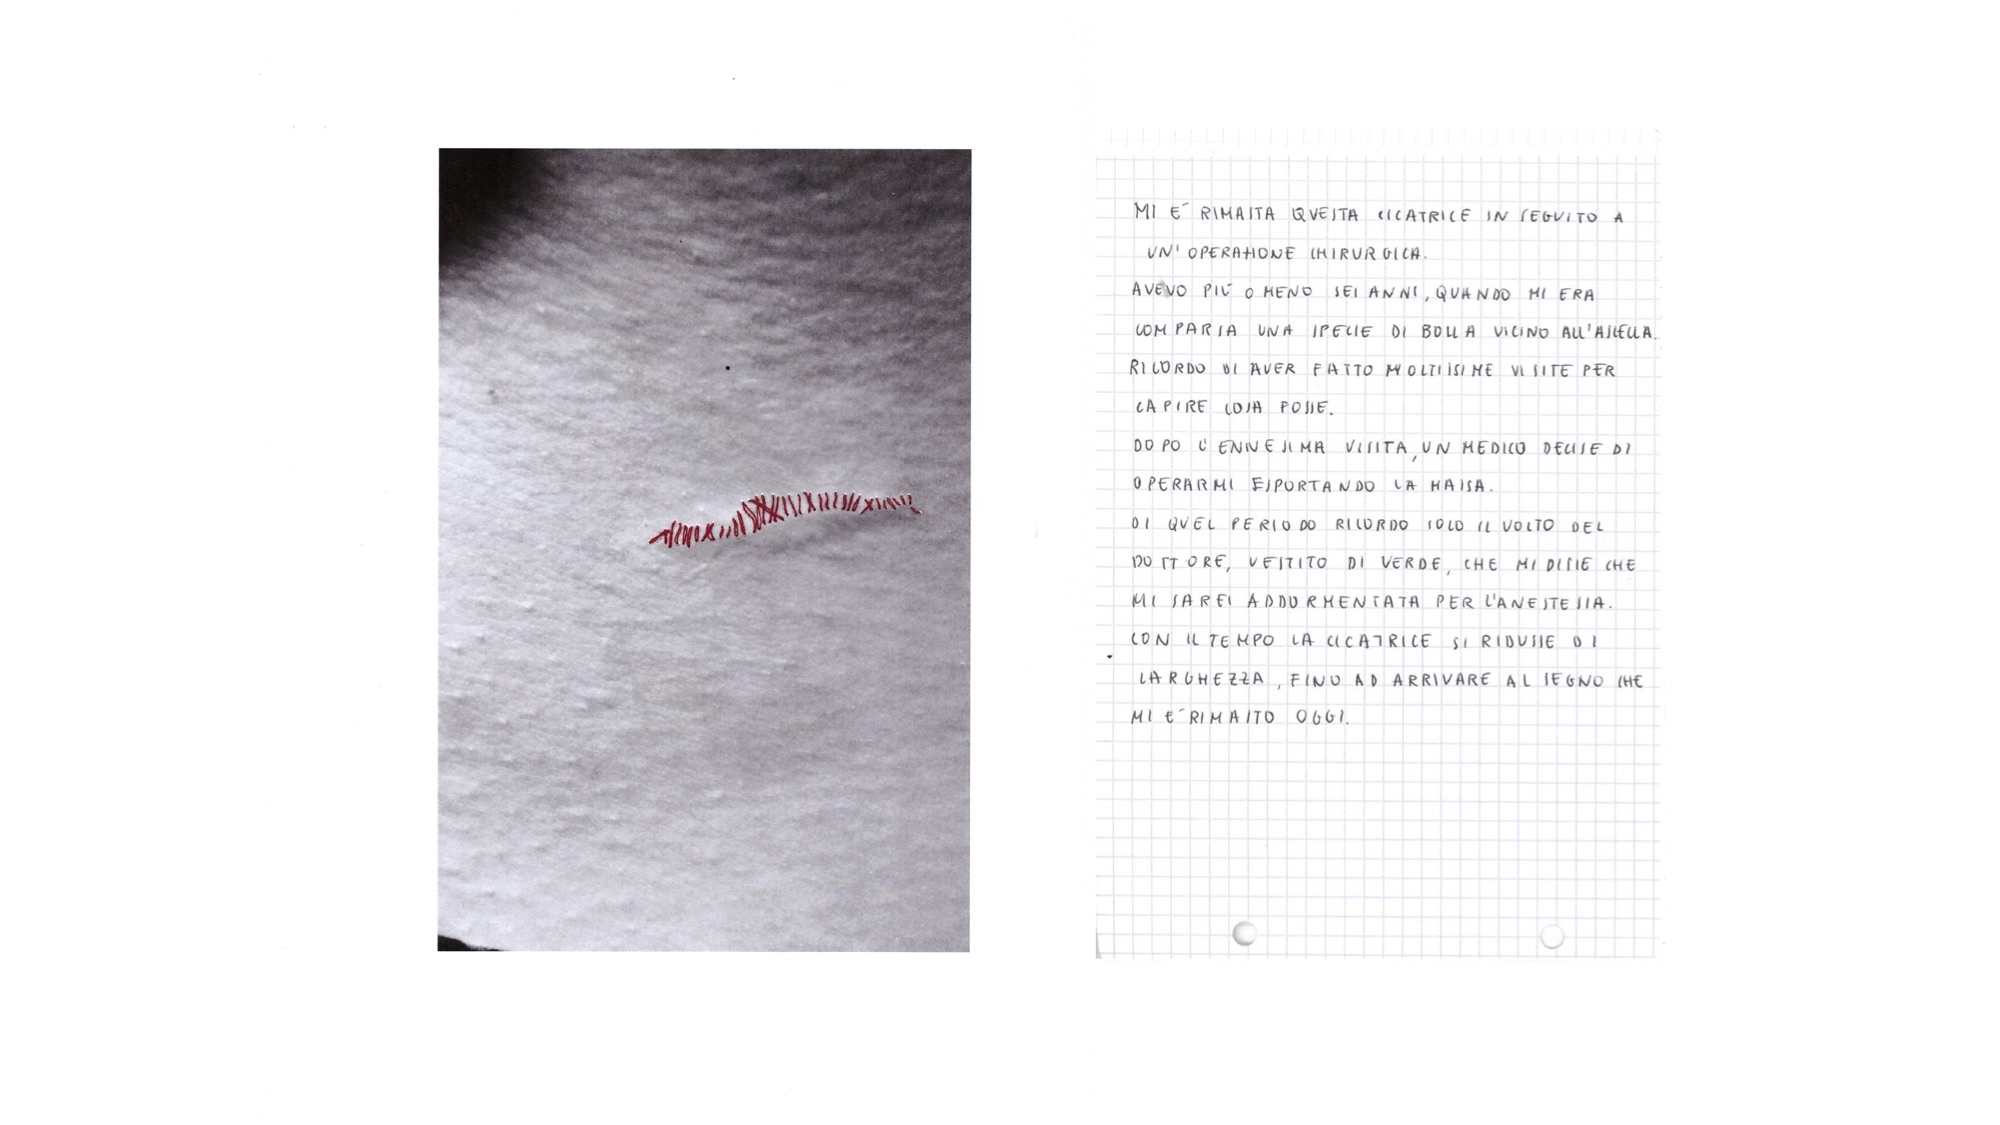 MI E´ RIMASTA QUESTA CICATRICE IN SEGUITO A
UN' OPERAZIONE CHIRURGICA.
AVEVO PIÙ O MENO SEI ANNI, QUANDO MI ERA
COMPARSA UNA SPECIE DI BOLLA VICINO ALL'ASCELLA.
RICORDO DI AVER FATTO MOLTISSIME VISITE PER
CAPIRE COSA FOSSE.
DOPO L'ENNESIMA VISITA, UN MEDICO DECISE DI
OPERARMI ESPORTANDO LA MASSA.
DI QUEL PERIODO RICORDO SOLO IL VOLTO DEL
DOTTORE, VESTITO DI VERDE, CHE MI DISSE CHE
MI SAREI ADDORMENTATA PER L'ANESTESIA.
CON IL TEMPO LA CICATRICE SI RIDUSSE DI
LARGHEZZA, FINO AD ARRIVARE AL SEGNO CHE
MI E´ RIMASTO OGGI.